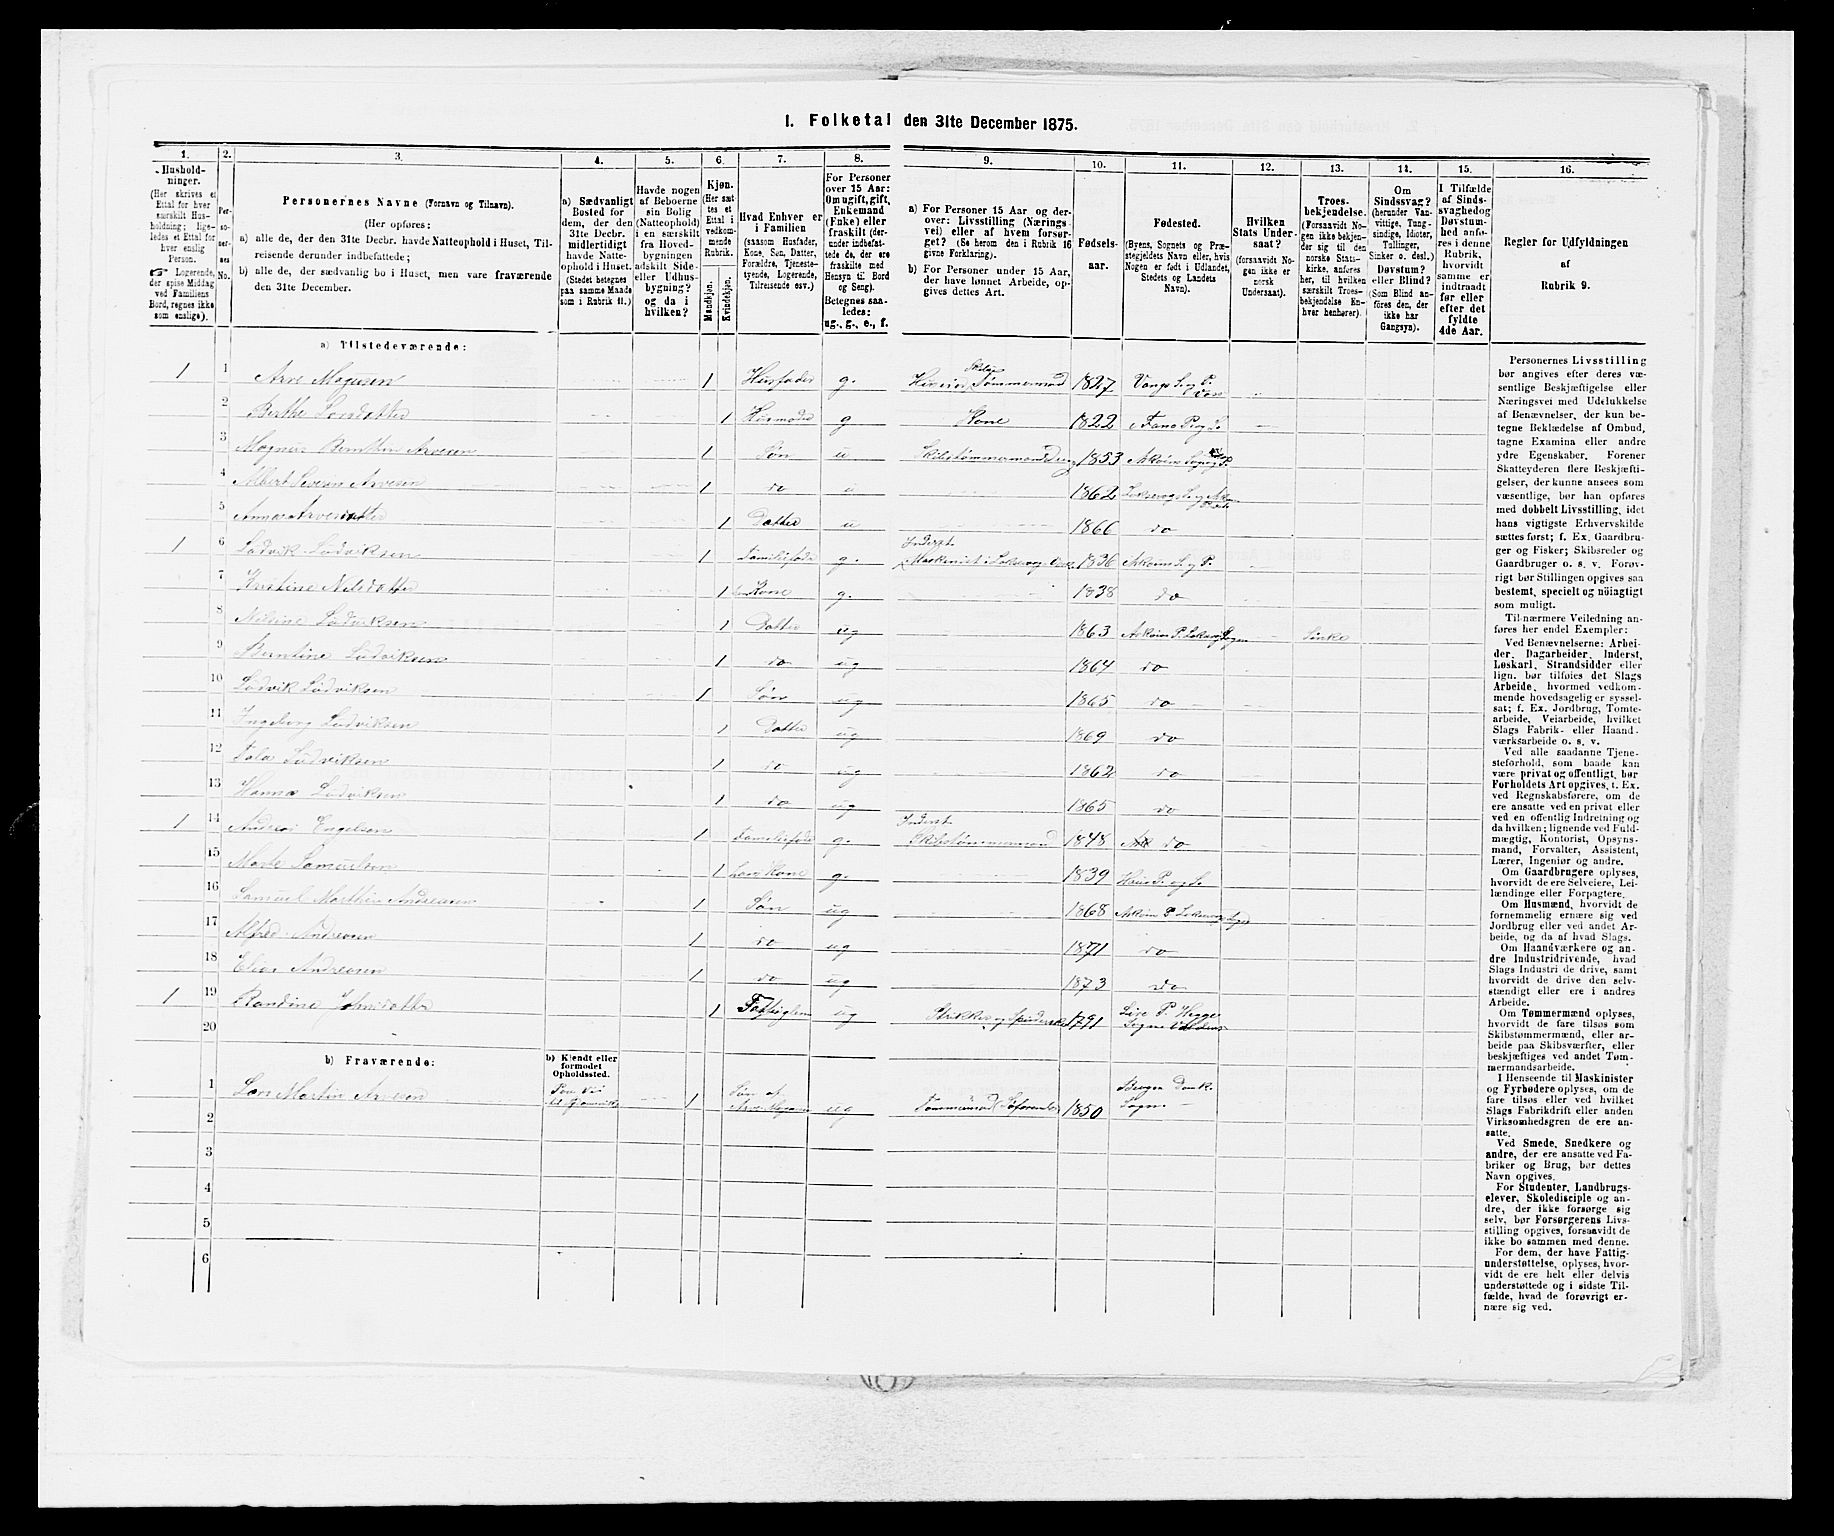 1. Folketal den 31te December 1875.
1. 2. 3. 4. 5. 6. 7. 8. 9. 10. 11. 12. 13. 14. 15. 16.
Hushold-
ninger.
(Her skrives et
Ettal for hver
særskilt Hus-
holdning; lige-
ledes et Ettal for
hver enslig
Person.
Logerende,
der spise Middag
ved Familiens
Bord, regnes ikke
som enslige).
Per-
so-
ner-
nes
No.
Personernes Navne (Fornavn og Tilnavn).
(Her opføres:
a) alle de, der den 31te Decbr. havde Natteophold i Huset, Til-
reisende derunder indbefattede;
b) alle de, der sædvanlig bo i Huset, men vare fraværende
den 31te December.
a) Sædvanligt
Bosted for
dem, der den
31te Decbr.
midlertidigt
havde Natte-
ophold i Huset.
(Stedet betegnes
paa samme Maade
som i Rubrik 11.)
Havde nogen
af Beboerne
sin Bolig
(Natteophold)
i en særskilt
fra Hoved-
bygningen
adskilt Side-
eller Udhus-
bygning?
og da i
hvilken?
Kjøn.
(Her sæt-
tes et
Ettal i
vedkom-
mende
Rubrik.
Mandkjøn.
Kvindekjøn.
Hvad Enhver er
i Familien
(saasom Husfader,
Kone, Søn, Datter,
Forældre, Tjeneste-
tyende, Logerende,
Tilreisende osv.)
For Personer
over 15 Aar:
Om ugift, gift,
Enkemand
(Enke) eller
fraskilt (der-
under indbefat-
tede de, der ere
fraskilte med
Hensyn til Bord
og Seng).
Betegnes saa-
ledes:
ug., g., e., f.
a) For Personer 15 Aar og der-
over: Livsstilling (Nærings-
vei) eller af hvem forsør-
get? (Se herom den i Rubrik 16
givne Forklaring).
b) For Personer under 15 Aar,
der have lønnet Arbeide, op-
gives dettes Art.
Fødsels-
aar.
Fødested.
(Byens, Sognets og Præ-
stegjeldets Navn eller, hvis
Nogen er født i Udlandet,
Stedets og Landets
Navn).
Hvilken
Stats Under-
saat?
(forsaavidt No-
gen ikke er
norsk
Undersaat).
Troes-
bekjendelse.
(Forsaavidt No-
gen ikke bekjen-
der sig til den
norske Stats-
kirke, anføres
her, til hvilken
særskilt Troes-
bekjendelse En-
hver henhører).
Om
Sindssvag?
(herunder Van-
vittige, Tung-
sindige, Idioter,
Tullinger,
Sinker o. desl.)
Døvstum?
eller Blind?
(Som Blind an-
føres den, der
ikke har
Gangsyn).
I Tilfælde
af Sinds-
svaghed og
Døvstum-
hed anfø-
res i denne
Rubrik,
hvorvidt
samme er
indtraadt
før eller
efter det
fyldte
4de Aar.
Regler for Udfyldningen
af
Rubrik 9.
a) Tilstedeværende:
1 1 Arve Mogensen 1 Husfader g. Tømmermand 1827 Vangs
2 Berthe 1 Husmoder g Kone 1822 Fane
3 Magnus Arvesen 1 Søn u Skibstømmermand 1853
4 Albert Severin Arvesen 1 do u 1862
5 Anna Arvesdatter 1 Datter u 1866 do
1 6 Ludvik Ludviksen 1 Familiefader g. Inderst Maskinist i 1836 Askøens S. og P.
7 Kristine Nilsdatter 1 Kone g. 1838 do
8 Nilsine Ludviksen 1 Datter ug 1863 Askøens P. Sogn Sinke
9 Berntine Ludviksen 1 do ug 1864 do
10 Ludvik Ludviksen 1 Søn ug 1865 do
11 Ingeborg Ludviksen 1 Datter ug 1869 do
12 Ludviksen 1 do ug 1862 do
13 Hanna Ludviksen 1 do ug 1865 do
1 14 Andreas Engelsen 1 Familiefader g. Inderst Skibstømmermand 1848 do
15 Marte Samuelsen 1 Kone g. 1839 Haus P. og S.
16 Samuel Andreasen 1 Søn ug 1868 Askøens P. Sogn
17 Alfred Andreasen 1 do ug 1871 do
18 Elias Andreasen 1 do ug 1873 do
1 19 Randine Johnsdatter 1 Fattiglem ug 1791
20
b) Fraværende:
b) Kjendt eller
formodet
Opholdssted.
1 Martin Arvesen 1 Søn af ug 1850 Bergen Domk. Sogn
2
3
4
5
6
Personernes Livsstilling
bør angives efter deres væ-
sentlige Beskjæftigelse eller
Næringsvei med Udelukkelse
af Benævnelser, der kun be-
tegne Beklædelse af Ombud,
tagne Examina eller andre
ydre Egenskaber. Forener
Skatteyderen flere Beskjæfti-
gelser, der kunne ansees som
væsentlige, bør han opføres
med dobbelt Livsstilling, idet
hans vigtigste Erhvervskilde
sættes først; f. Ex. Gaardbru-
ger og Fisker; Skibsreder og
Gaardbruger o. s. v. Forøv-
rigt bør Stillingen opgives saa
bestemt, specielt og nöiagtigt
som muligt.
Til nærmere Veiledning an-
føres her endel Exempler:
Ved Benævnelserne: Arbei-
der, Dagarbeider, Inderst,
Løskarl, Strandsidder eller
lign. bør tilføies det Slags
Arbeide, hvormed vedkom-
mende hovedsagelig er syssel-
sat; f. Ex. Jordbrug, Tomte-
arbeide, Veiarbeide, hvilket
Slags Fabrik- eller Haand-
værksarbeide o. s. v.
Ved alle saadanne Tjene-
steforhold, som baade kan
være privat og offentligt, bør
Forholdets Art opgives, t. Ex.
ved Regnskabsførere, om de
ere ansatte ved en privat eller
ved en offentlig Indretning og
da hvilken; lignende ved Fuld-
mægtig, Kontorist, Opsyns-
mand, Forvalter, Assistent,
Lærer, Ingeniør og andre.
Om Gaardbrugere oplyses,
hvorvidt de ere Selveiere, Lei-
lændinge eller Forpagtere.
Om Husmænd, hvorvidt de
fornemmelig ernære sig ved
Jordbrug eller ved andet Ar-
beide, og da af hvad Slags.
Om Haandværkere og an-
dre Industridrivende, hvad
Slags Industri de drive, samt
hvorvidt de drive den selv-
stændigt eller ere i andres
Arbeide.
Om Tømmermænd oplyses,
hvorvidt de fare tilsøs som
Skibstømmermænd, eller ar-
beide paa Skibsværfter, eller
beskjæftiges ved andet Tøm-
mermandsarbeide.
I Henseende til Maskinister
og Fyrbødere oplyses, om de
fare tilsøs eller ved hvilket
Slags Fabrikdrift eller anden
Virksomhedsgren de ere an-
satte.
Ved Smede, Snedkere og
andre, der ere ansatte ved Fa-
briker og Brug, bør dettes
Navn opgives.
For Studenter, Landbrugs-
elever, Skoledisciple og an-
dre, der ikke forsørge sig
selv, bør Forsørgerens Livs-
stilling opgives, forsaavidt de
ikke bo sammen med denne.
For dem, der have Fattig-
understøttelse, oplyses, hvor-
vidt de ere helt eller delvis
understøttede og i sidste Til-
fælde, hvad de forøvrigt er-
nære sig ved.